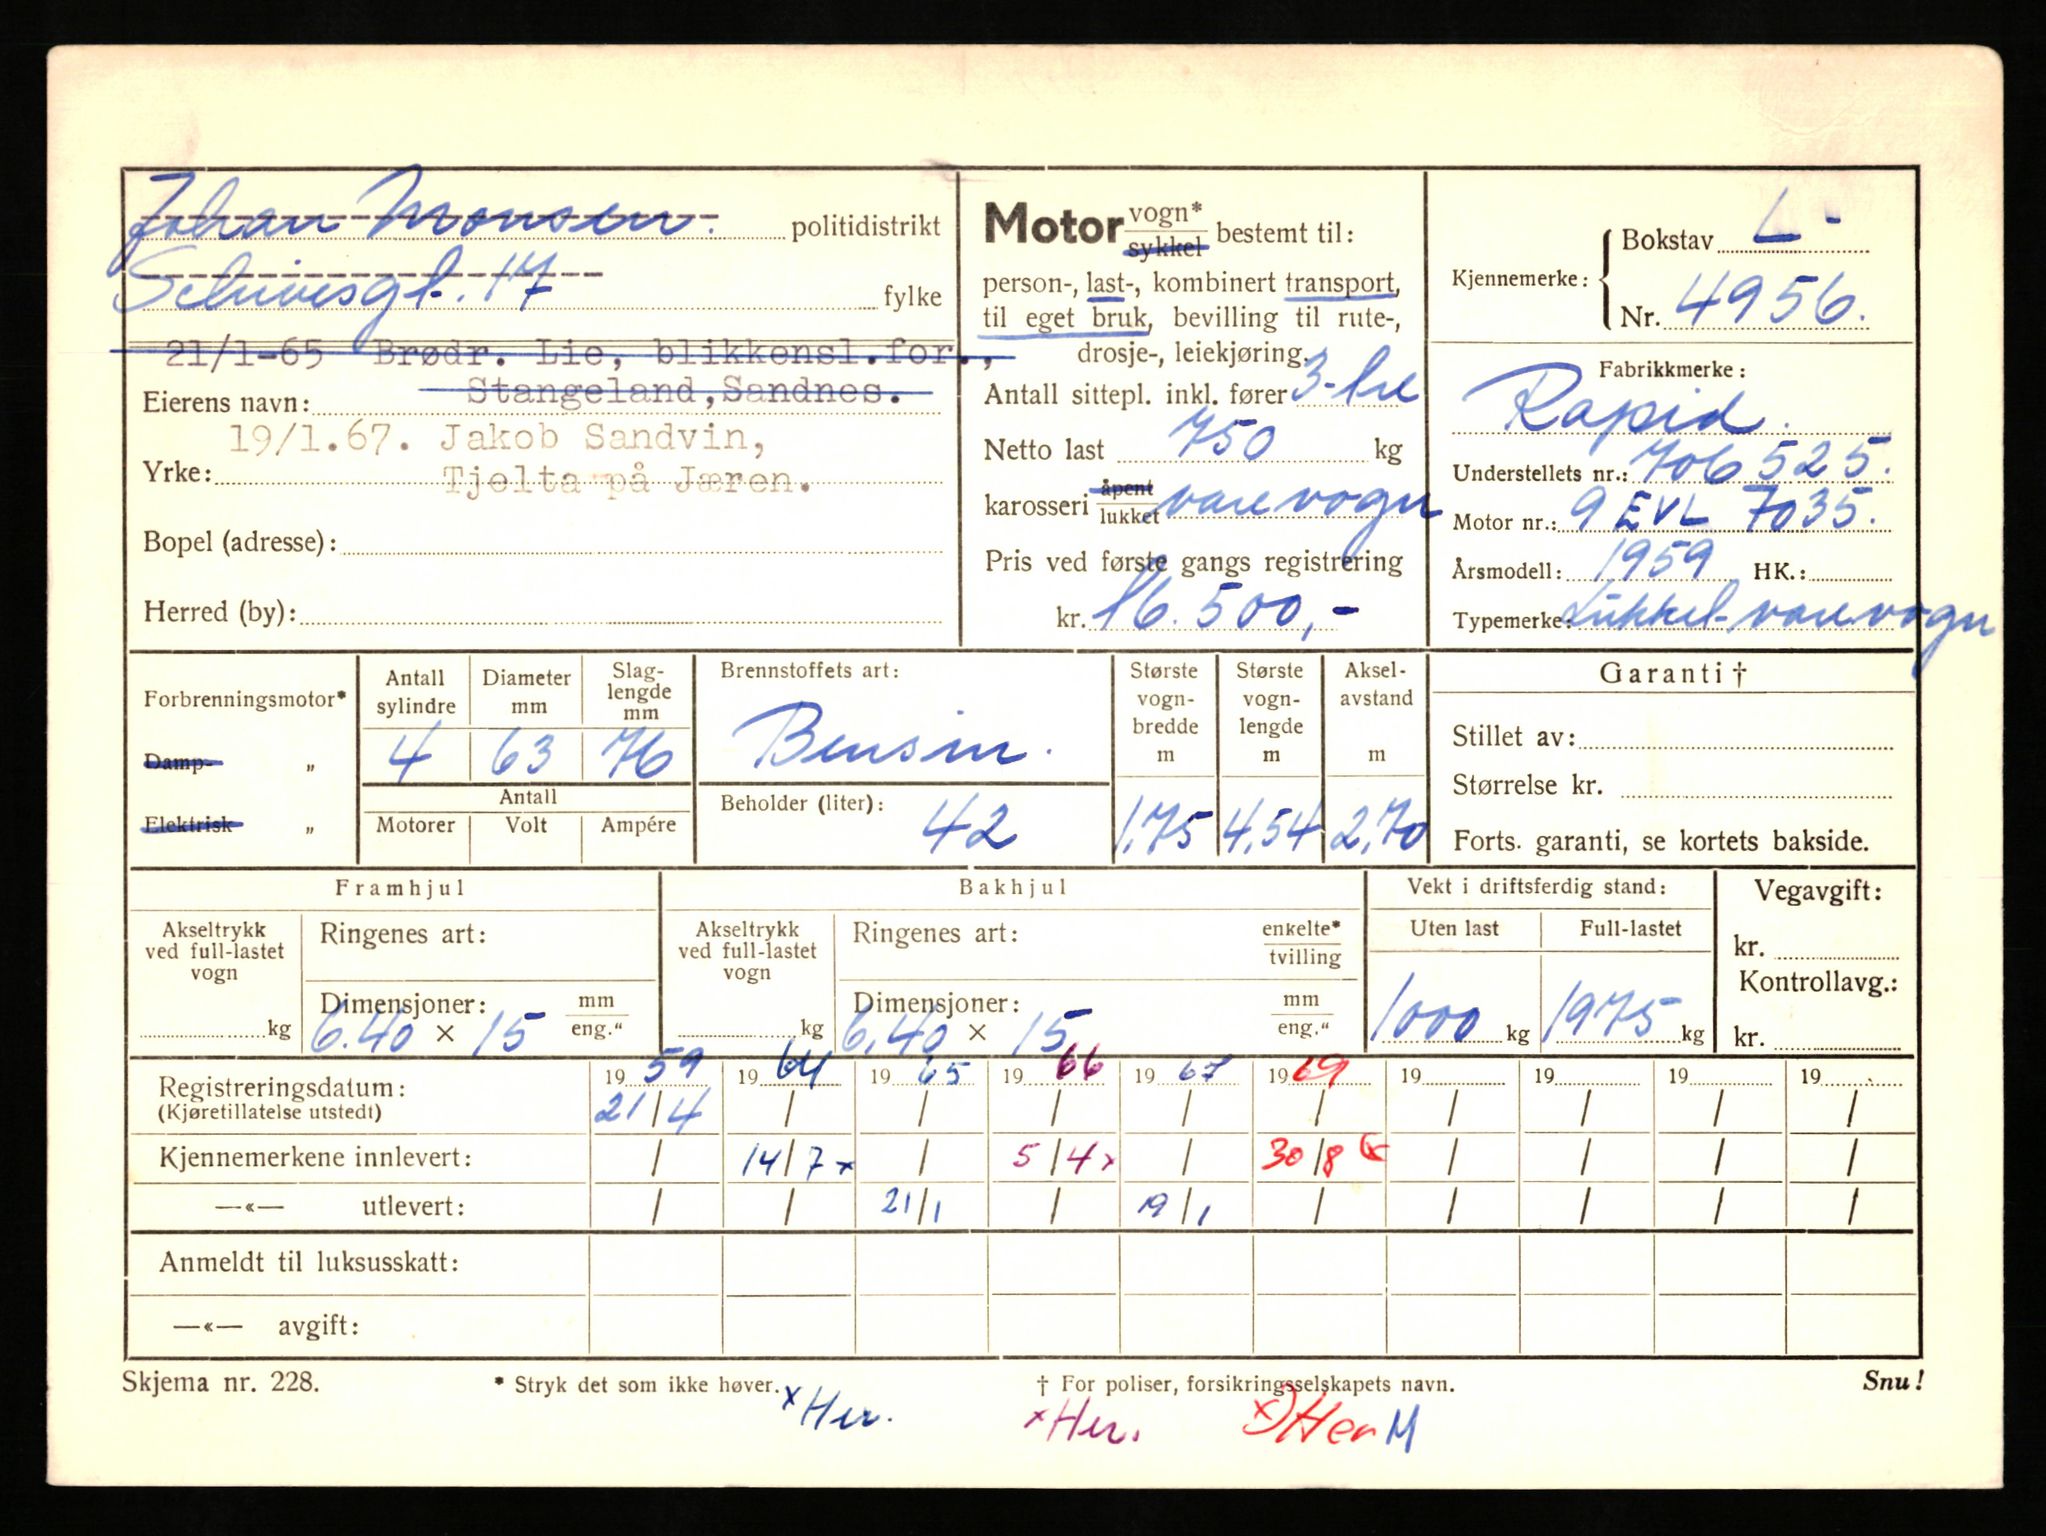 Johan Monsen. politidistrikt
17 fylke
21/1-65 Brødr. Lie, blikkensl.for.,
Stangeland,Sandnes.
Eierens navn:
19/1.67. Jakob Sandvin,
Yrke: Tjelta på Jæren.
Bopel (adresse):
Herred (by):
Motor vogn* sykkel bestemt til:
person-, last-, kombinert transport,
til eget bruk, bevilling til rute-,
drosje-, leiekjøring.
Antall sittepl. inkl. fører 3-tre
Netto last 750 kg
karosseri åpent lukket varevogn
Pris ved første gangs registrering
kr. 16.500,-
Kjennemerke: Bokstav L-
Nr. 4956.
Fabrikkmerke:
Rapid.
Understellets nr.: 706525.
Motor nr.: 9 EVL 7035.
Årsmodell: 1959 HK.:
Typemerke: Lukket varevogn
Forbrenningsmotor*
Damp- „
Elektrisk „
Antall sylindre Diameter mm Slag-lengde mm
4 63 76
Antall
Motorer Volt Ampére
Brennstoffets art:
Bensin.
Beholder (liter): 42
Største vogn-bredde m 1,75
Største vogn-lengde m 4,54
Aksel-avstand m 2,70
Garanti †
Stillet av:
Størrelse kr.
Forts. garanti, se kortets bakside.
Framhjul
Akseltrykk ved full-lastet vogn kg
Ringenes art:
Dimensjoner: mm eng."
6.40 × 15
Bakhjul
Akseltrykk ved full-lastet vogn kg
Ringenes art: enkelte* tvilling
Dimensjoner: mm eng."
6.40 × 15
Vekt i driftsferdig stand:
Uten last Full-lastet
1000 kg 1975 kg
Vegavgift:
kr.
Kontrollavg.:
kr.
Registreringsdatum: 19 59 19 64 19 65 19 66 19 67 19 69 19 19 19 19
(Kjøretillatelse utstedt) 21/4 / / / / / / / / /
Kjennemerkene innlevert: / 14/7 x / 5/4 x / 30/8 x / / / /
—«— utlevert: / / 21/1 / 19/1 / / / / /
Anmeldt til luksusskatt:
—«— avgift:
Skjema nr. 228. * Stryk det som ikke høver. † For poliser, forsikringsselskapets navn. Snu!
x Her. x Her. x) Her M